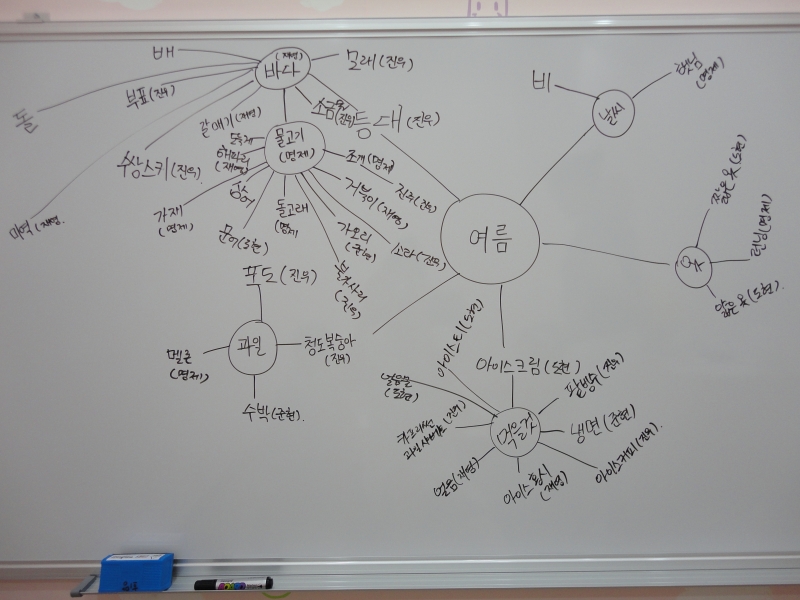 배
(재영)
바다
모래(진우)
부표(진우)
돌
갈매기(재영)
소금물
(진우)
등대(진우)
쌍스키(진우)
미역(재영)
물고기
(명제)
해파리
(재영)
조개(명제)
거북이(재영)
진주(진우)
상어
가재
(명제)
문어(도현)
돌고래
(명제)
가오리
(준현)
소라(진우)
불가사리
(진우)
여름
비
날씨
햇님
(명제)
옷
짧은 옷(도현)
런닝(명제)
얇은 옷(도현)
과일
포도(진우)
멜론
(명제)
청도복숭아
(진우)
수박(준현)
먹을것
아이스티(도현)
아이스크림(도현)
얼음물
(도현)
팥빙수(진우)
냉면(준현)
아이스커피(진우)
아이스홍시
(재영)
얼음(재영)